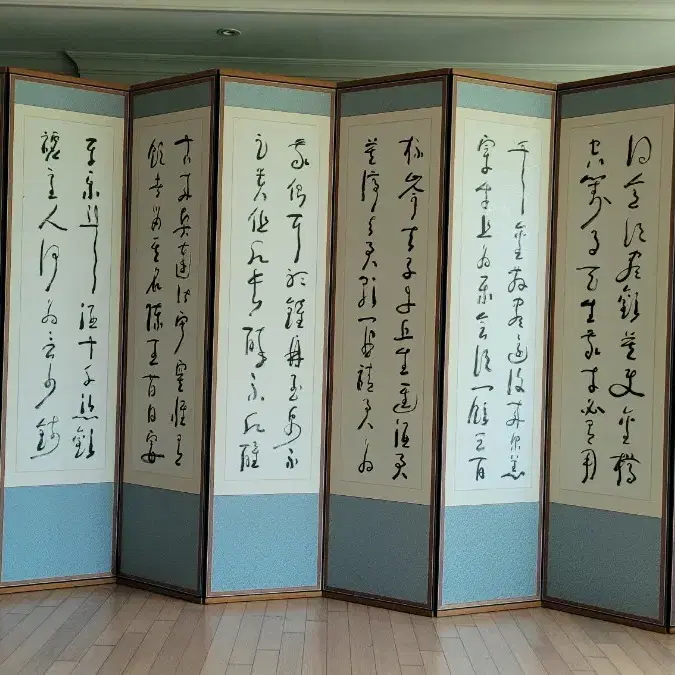 得意須盡歡莫使金樽
空對月天生我材必有用
千金散盡還復來烹羔
宰牛且為樂會須一飲三百
杯岑夫子丹丘生進酒君
莫停與君歌一曲請君為
我側耳聽鐘鼎玉帛不
足貴但願長醉不願醒
古來賢達皆寂寞惟有
飲者留其名陳王昔日宴
平樂斗酒十千恣歡
謔主人何為言少錢